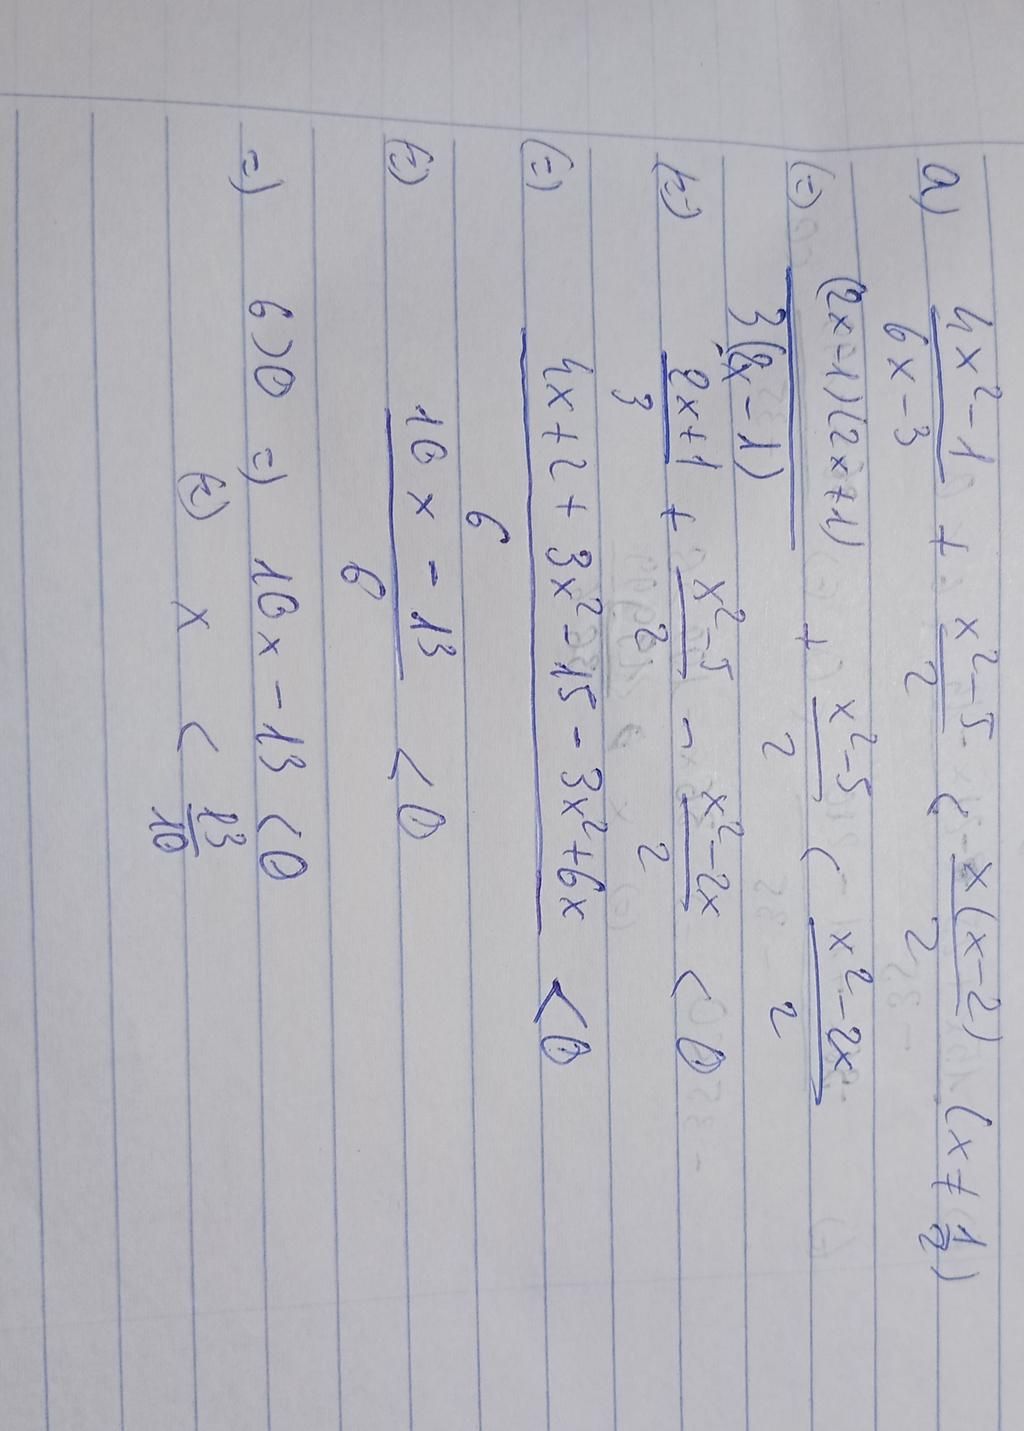 a) (4x² - 1)/(6x - 3) + (x² - 5)/2 < x(x - 2)/2 (x ≠ 1/2)
(=) (2x - 1)(2x + 1)/3(2x - 1) + (x² - 5)/2 < (x² - 2x)/2
(=) (2x + 1)/3 + (x² - 5)/2 - (x² - 2x)/2 < 0
(=) (4x + 2 + 3x² - 15 - 3x² + 6x)/6 < 0
(=) (10x - 13)/6 < 0
=) 6 > 0 =) 10x - 13 < 0
(=) x < 13/10